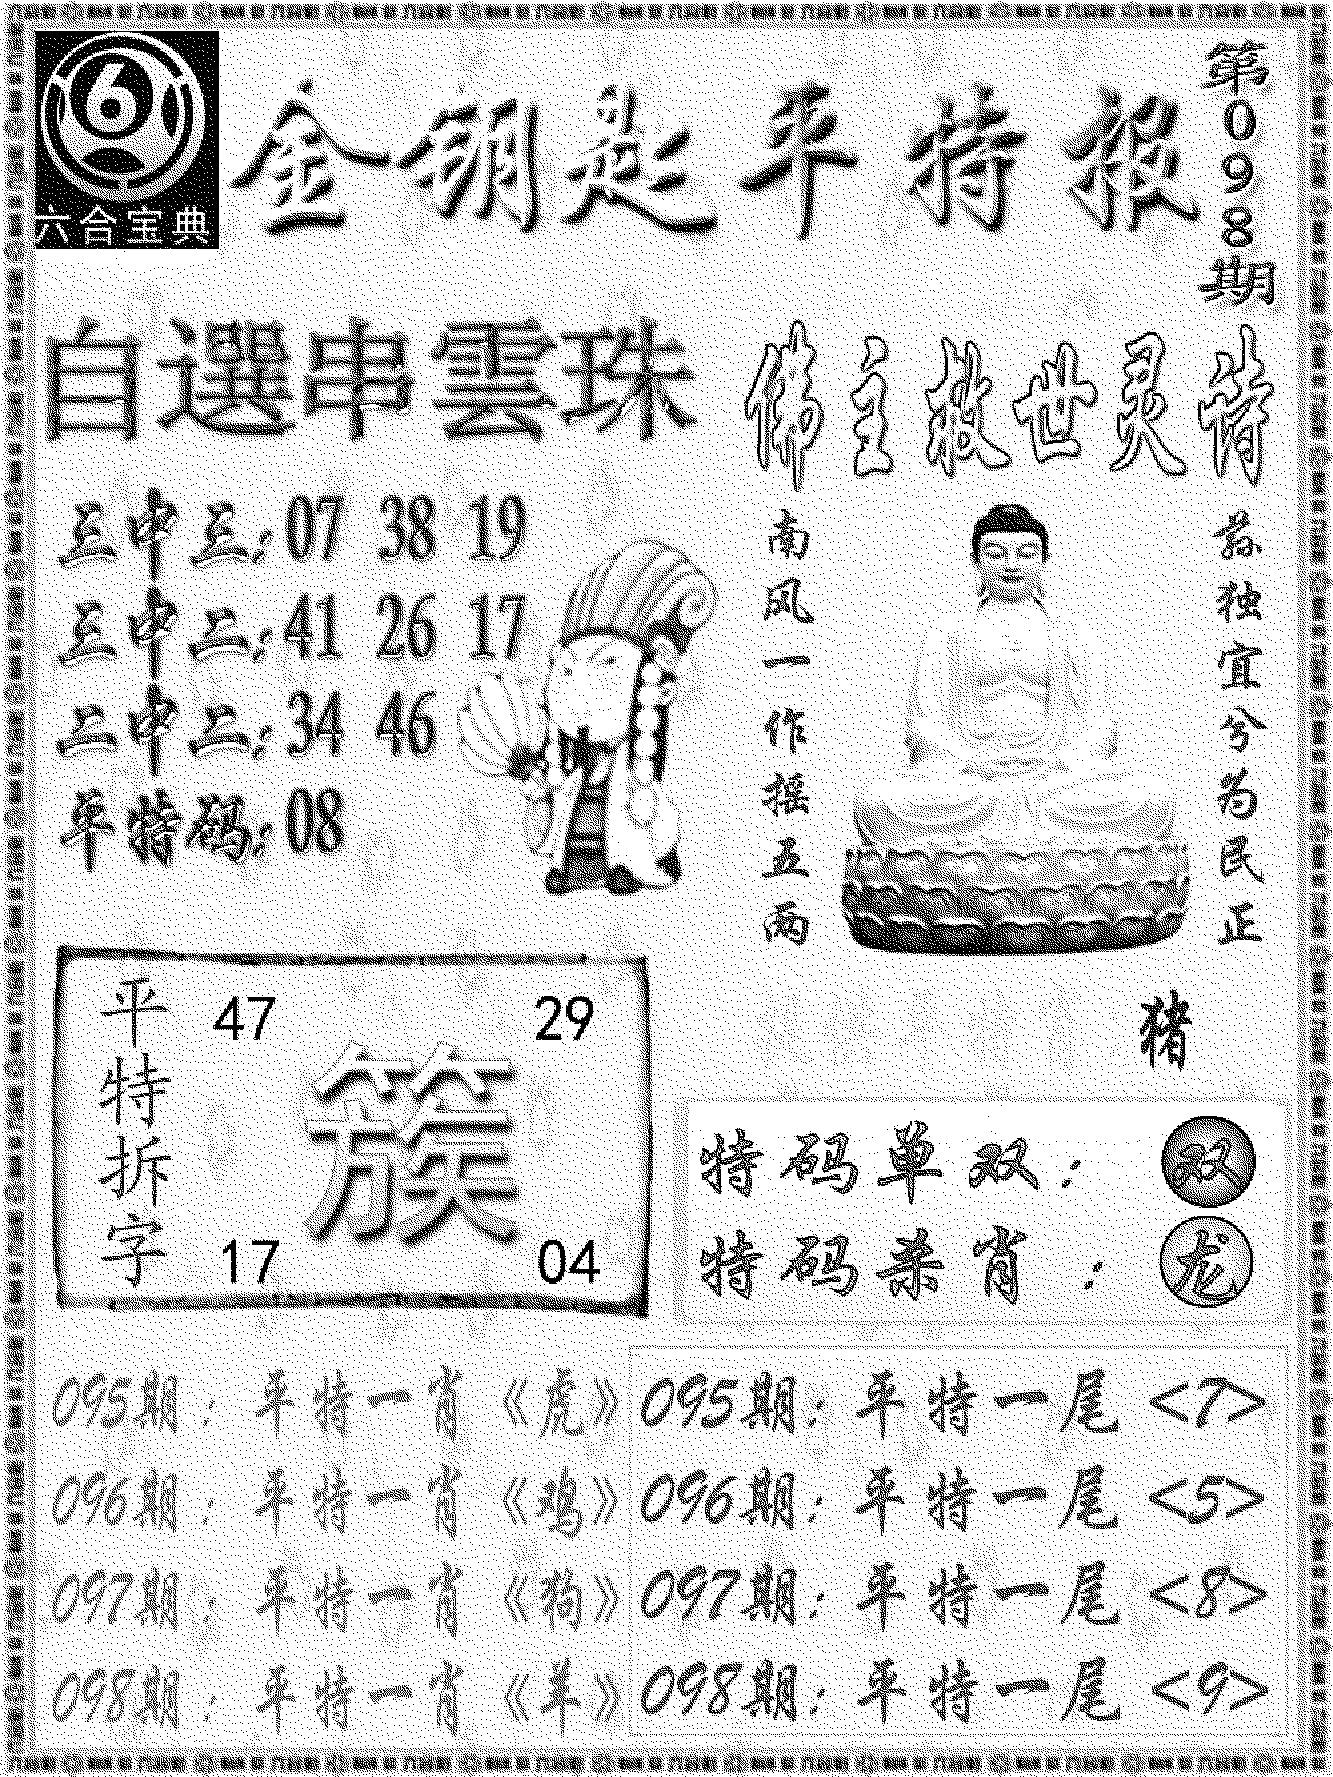 6
六合宝典
金钥匙平特报
第098期
自選串雲珠
三中三:07 38 19
三中二:41 26 17
二中二:34 46
平特码:08
佛主救世灵诗
荪独宜兮为民正
南风一作摇五两
猪
平特拆字
47 29
簇
17 04
特码单双:双
特码杀肖:龙
095期:平特一肖《虎》
096期:平特一肖《鸡》
097期:平特一肖《狗》
098期:平特一肖《羊》
095期:平特一尾<7>
096期:平特一尾<5>
097期:平特一尾<8>
098期:平特一尾<9>